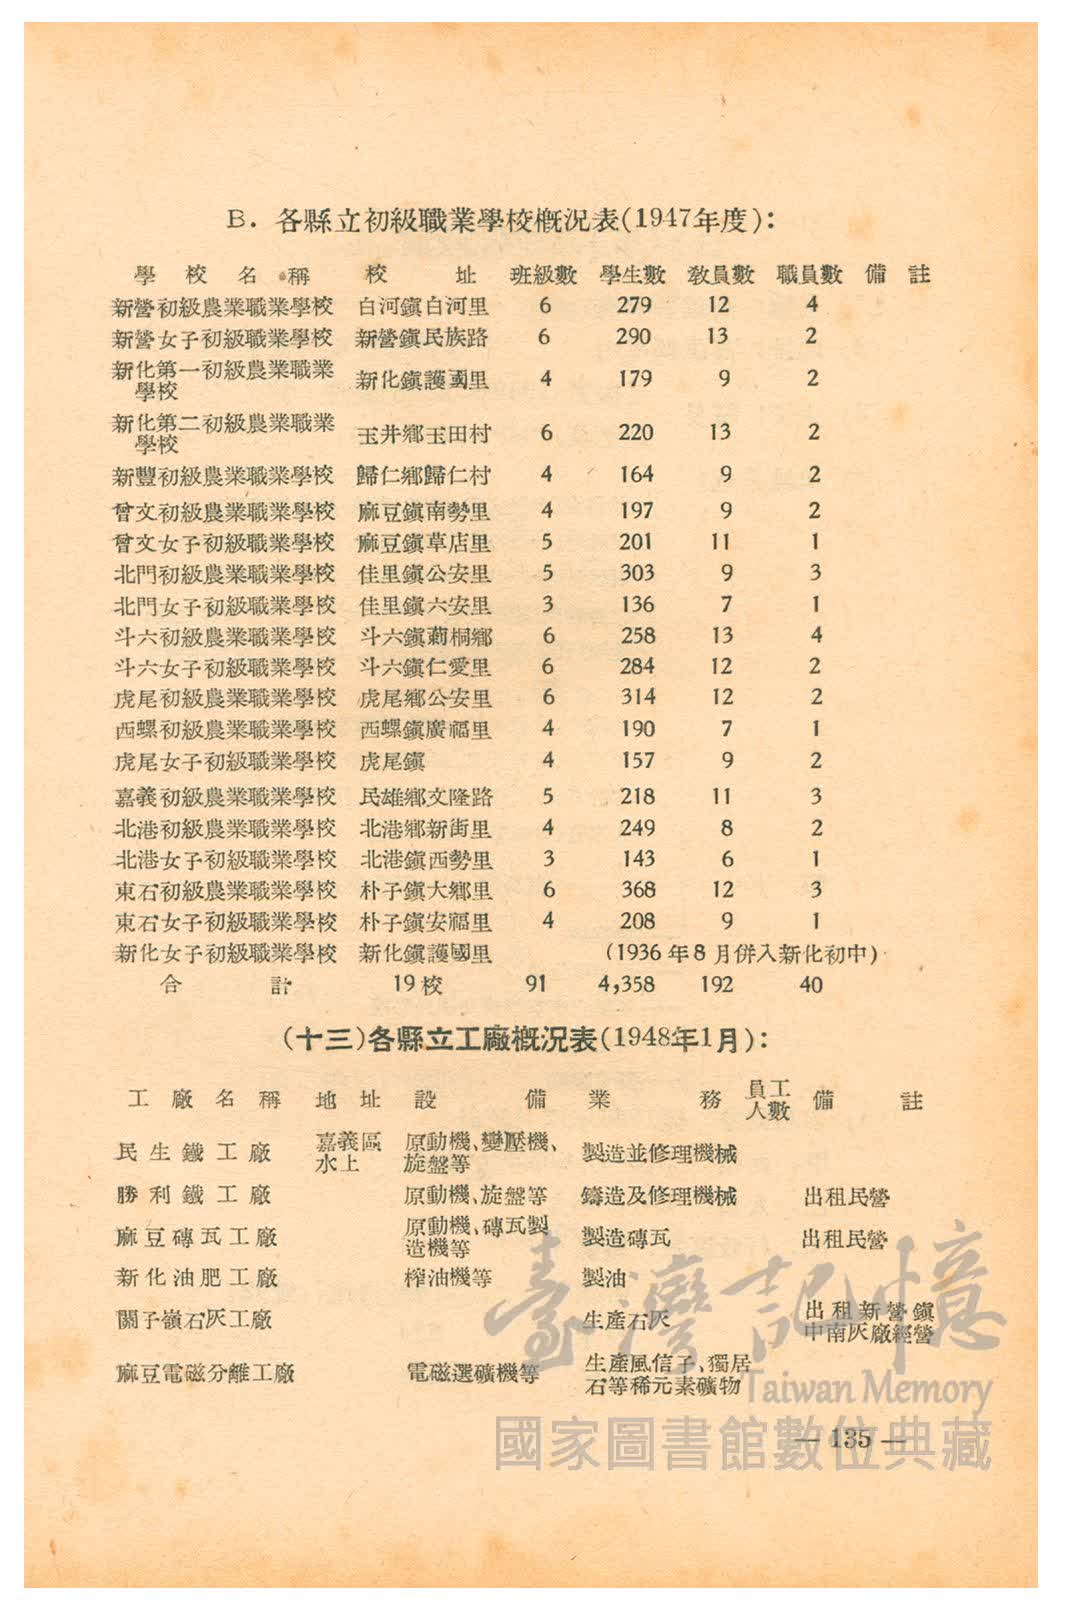 B. 各縣立初級職業學校概況表(1947年度):
學校名稱 校址 班級數 學生數 教員數 職員數 備註
新營初級農業職業學校 白河鎭白河里 6 279 12 4
新營女子初級職業學校 新營鎭民族路 6 290 13 2
新化第一初級農業職業
學校 新化鎭護國里 4 179 9 2
新化第二初級農業職業
學校 玉井鄕玉田村 6 220 13 2
新豐初級農業職業學校 歸仁鄕歸仁村 4 164 9 2
曾文初級農業職業學校 麻豆鎭南勢里 4 197 9 2
曾文女子初級職業學校 麻豆鎭草店里 5 201 11 1
北門初級農業職業學校 佳里鎭公安里 5 303 9 3
北門女子初級職業學校 佳里鎭六安里 3 136 7 1
斗六初級農業職業學校 斗六鎭莿桐鄕 6 258 13 4
斗六女子初級職業學校 斗六鎭仁愛里 6 284 12 2
虎尾初級農業職業學校 虎尾鄕公安里 6 314 12 2
西螺初級農業職業學校 西螺鎭廣福里 4 190 7 1
虎尾女子初級職業學校 虎尾鎭 4 157 9 2
嘉義初級農業職業學校 民雄鄕文隆路 5 218 11 3
北港初級農業職業學校 北港鄕新街里 4 249 8 2
北港女子初級職業學校 北港鎭西勢里 3 143 6 1
東石初級農業職業學校 朴子鎭大鄕里 6 368 12 3
東石女子初級職業學校 朴子鎭安福里 4 208 9 1
新化女子初級職業學校 新化鎭護國里 (1936年8月併入新化初中)
合計 19校 91 4,358 192 40
(十三)各縣立工廠概況表(1948年1月):
工廠名稱 地址 設備 業務 員工人數 備註
民生鐵工廠 嘉義區水上 原動機、變壓機、旋盤等 製造並修理機械
勝利鐵工廠 原動機、旋盤等 鑄造及修理機械 出租民營
麻豆磚瓦工廠 原動機、磚瓦製造機等 製造磚瓦 出租民營
新化油肥工廠 榨油機等 製油
關子嶺石灰工廠 生產石灰 出租新營鎭中南灰廠經營
麻豆電磁分離工廠 電磁選礦機等 生產風信子、獨居石等稀元素礦物
臺灣記憶
Taiwan Memory
國家圖書館數位典藏
— 135 —